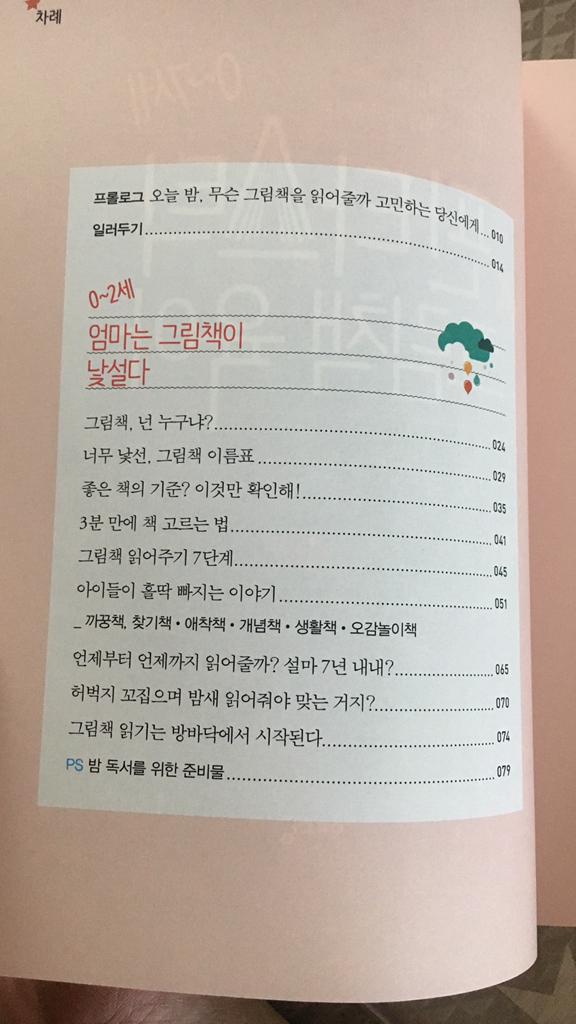 차례
프롤로그 오늘 밤, 무슨 그림책을 읽어줄까 고민하는 당신에게... 010
일러두기 ... 014
0~2세
엄마는 그림책이
낯설다
그림책, 넌 누구냐? ... 024
너무 낯선, 그림책 이름표 ... 029
좋은 책의 기준? 이것만 확인해! ... 035
3분 만에 책 고르는 법 ... 041
그림책 읽어주기 7단계 ... 045
아이들이 홀딱 빠지는 이야기 ... 051
_ 까꿍책, 찾기책 • 애착책 • 개념책 • 생활책 • 오감놀이책
언제부터 언제까지 읽어줄까? 설마 7년 내내? ... 065
허벅지 꼬집으며 밤새 읽어줘야 맞는 거지? ... 070
그림책 읽기는 방바닥에서 시작된다 ... 074
PS 밤 독서를 위한 준비물 ... 079